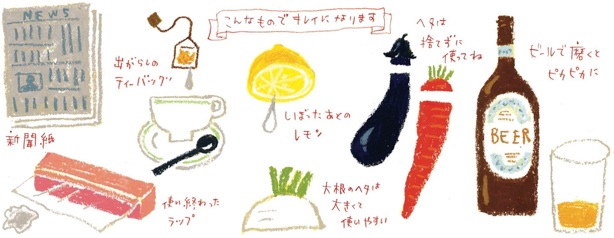 こんなものでキレイになります
NEWS
新聞紙
出がらしの
ティーバッグ
使い終わった
ラップ
しぼったあとの
レモン
大根のヘタは
大きくて
使いやすい
ヘタは
捨てずに
使ってね
BEER
ビールで磨くと
ピカピカに